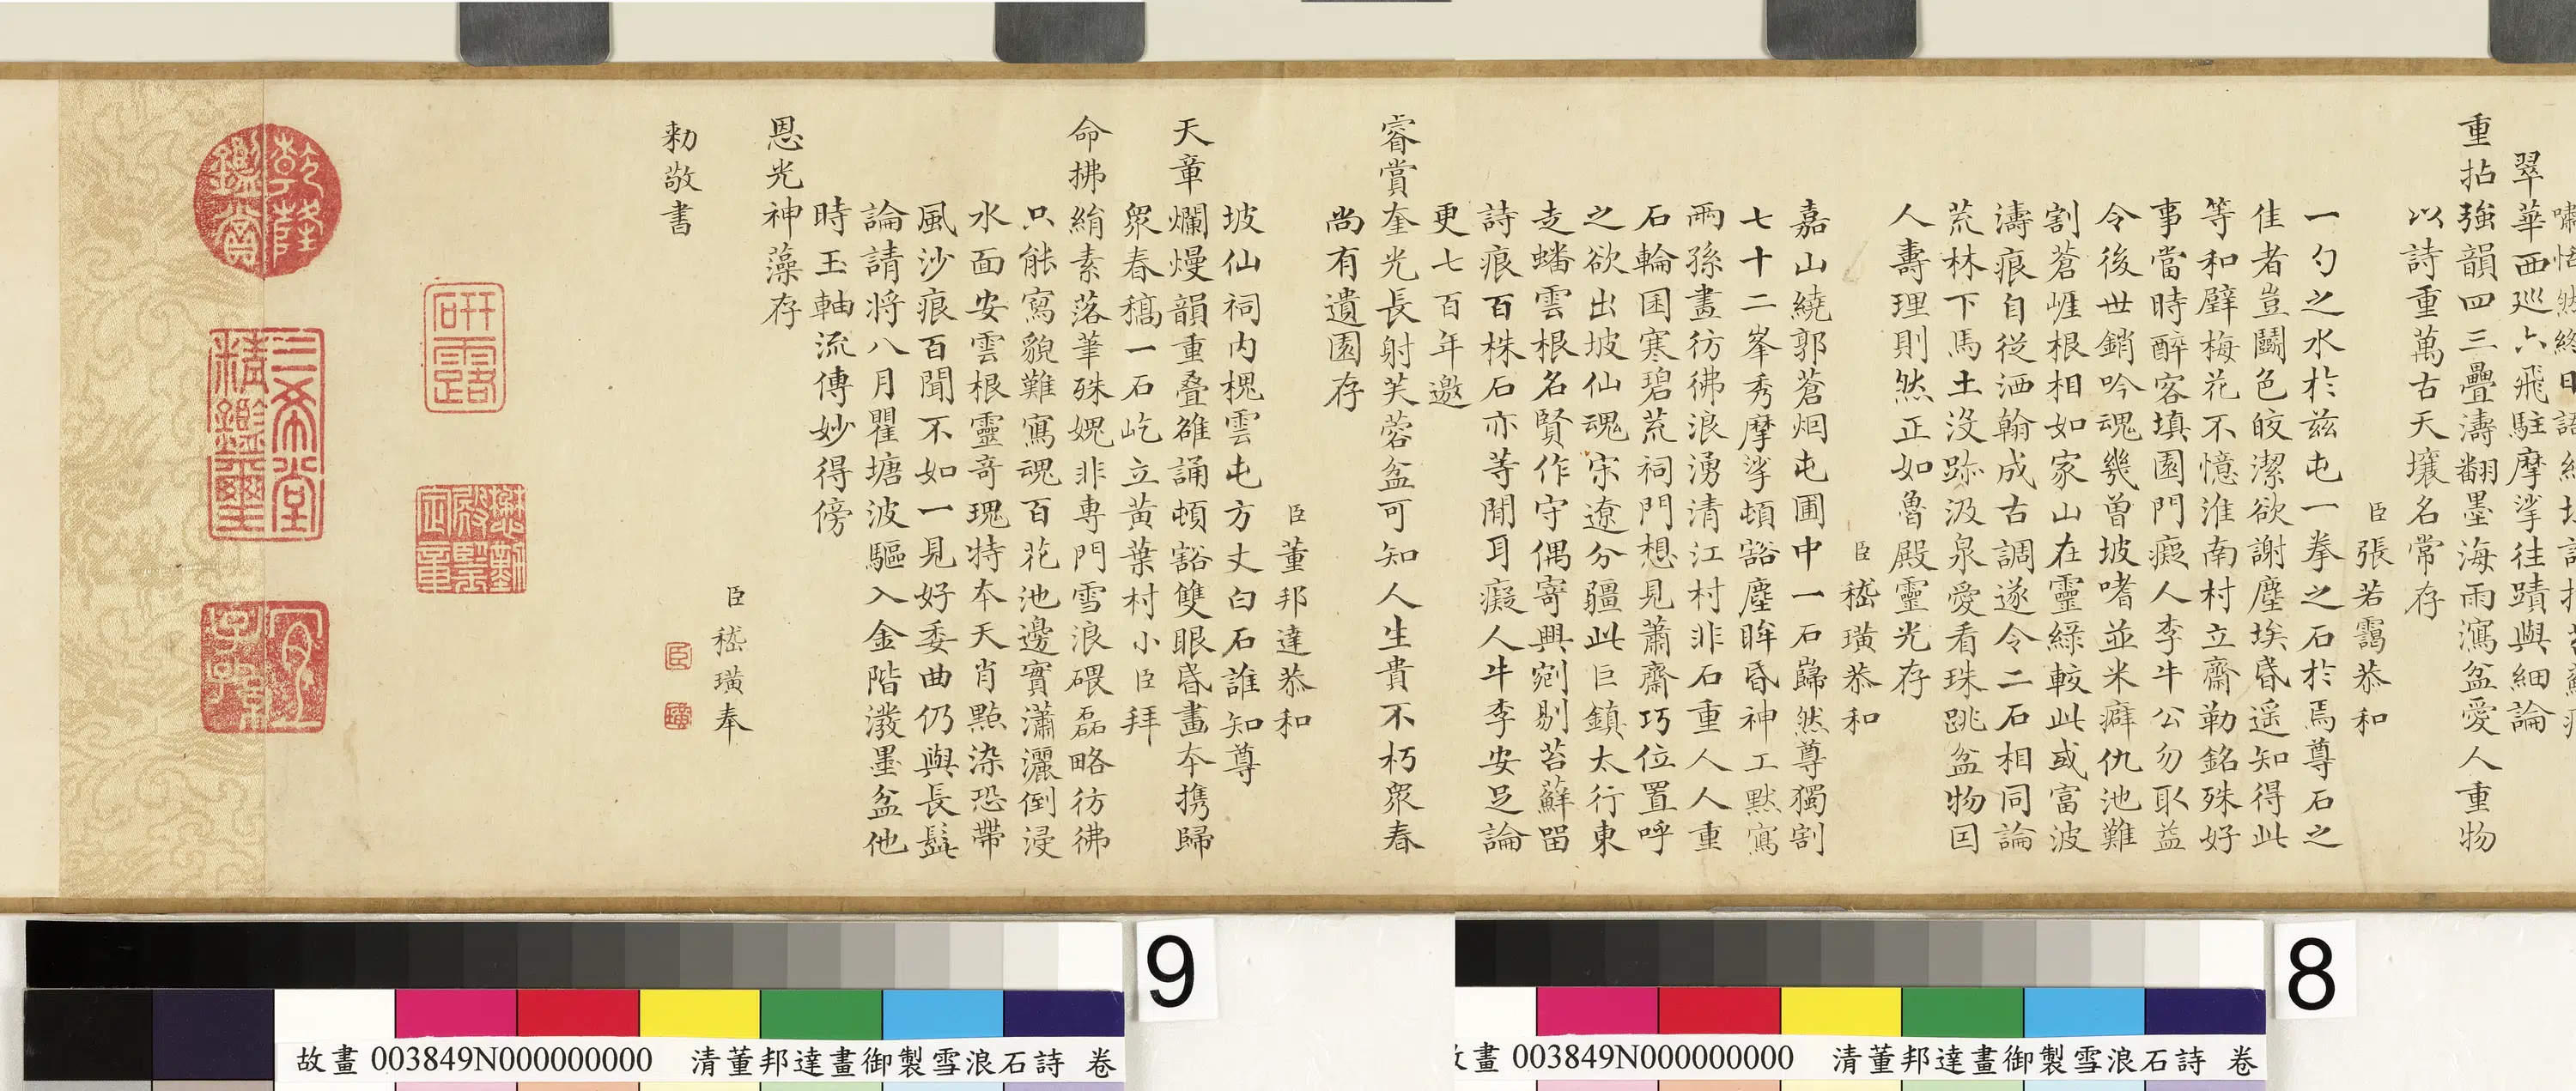 翠華西巡六飛駐摩挲往蹟與細論
重拈強韻四三疊濤翻墨海雨瀉盆愛人重物
以詩重萬古天壤名常存
臣張若靄恭和
一勺之水於茲屯一拳之石於焉尊石之
佳者豈鬭色皎潔欲謝塵埃昏遥知得此
等和璧梅花不憶淮南村立齋勒銘殊好
事當時醉客填園門癡人李牛公勿取益
令後世銷吟魂幾曾坡嗜並米癖仇池難
割蒼崕根相如家山在靈綠較此或富波
濤痕自從洒翰成古調遂令二石相同論
荒林下馬土沒跡汲泉愛看珠跳盆物因
人壽理則然正如魯殿靈光存
臣嵇璜恭和
嘉山繞郭蒼烟屯圃中一石巋然尊獨割
七十二峯秀摩挲頓豁塵眸昏神工默寫
兩孫畫彷彿浪湧清江村非石重人人重
石輪囷寒碧荒祠門想見蕭齋巧位置呼
之欲出坡仙魂宋遼分疆此巨鎮太行東
走蟠雲根名賢作守偶寄興剜剔苔蘚留
詩痕百株石亦等閒耳癡人牛李安足論
更七百年邀
睿賞奎光長射芙蓉盆可知人生貴不朽眾春
尚有遺園存
臣董邦達恭和
坡仙祠内槐雲屯方丈白石誰知尊
天章爛熳韻重疊雒誦頓豁雙眼昏畫本携歸
眾春稿一石屹立黃葉村小臣拜
命拂絹素落筆殊媿非專門雪浪碨磊略彷彿
只能寫貌難寫魂百花池邊實瀟灑倒浸
水面安雲根靈奇瑰特本天肖點染恐帶
風沙痕百聞不如一見好委曲仍與長髯
論請將八月瞿塘波驅入金階潑墨盆他
時玉軸流傳妙得傍
恩光神藻存
臣嵇璜奉
勅敬書
臣
璜
研露
懋勤殿鑒定章
乾隆鑑賞
三希堂精鑑璽
宜子孫
9
8
故畫 003849N000000000 清董邦達畫御製雪浪石詩 卷
畫 003849N000000000 清董邦達畫御製雪浪石詩 卷